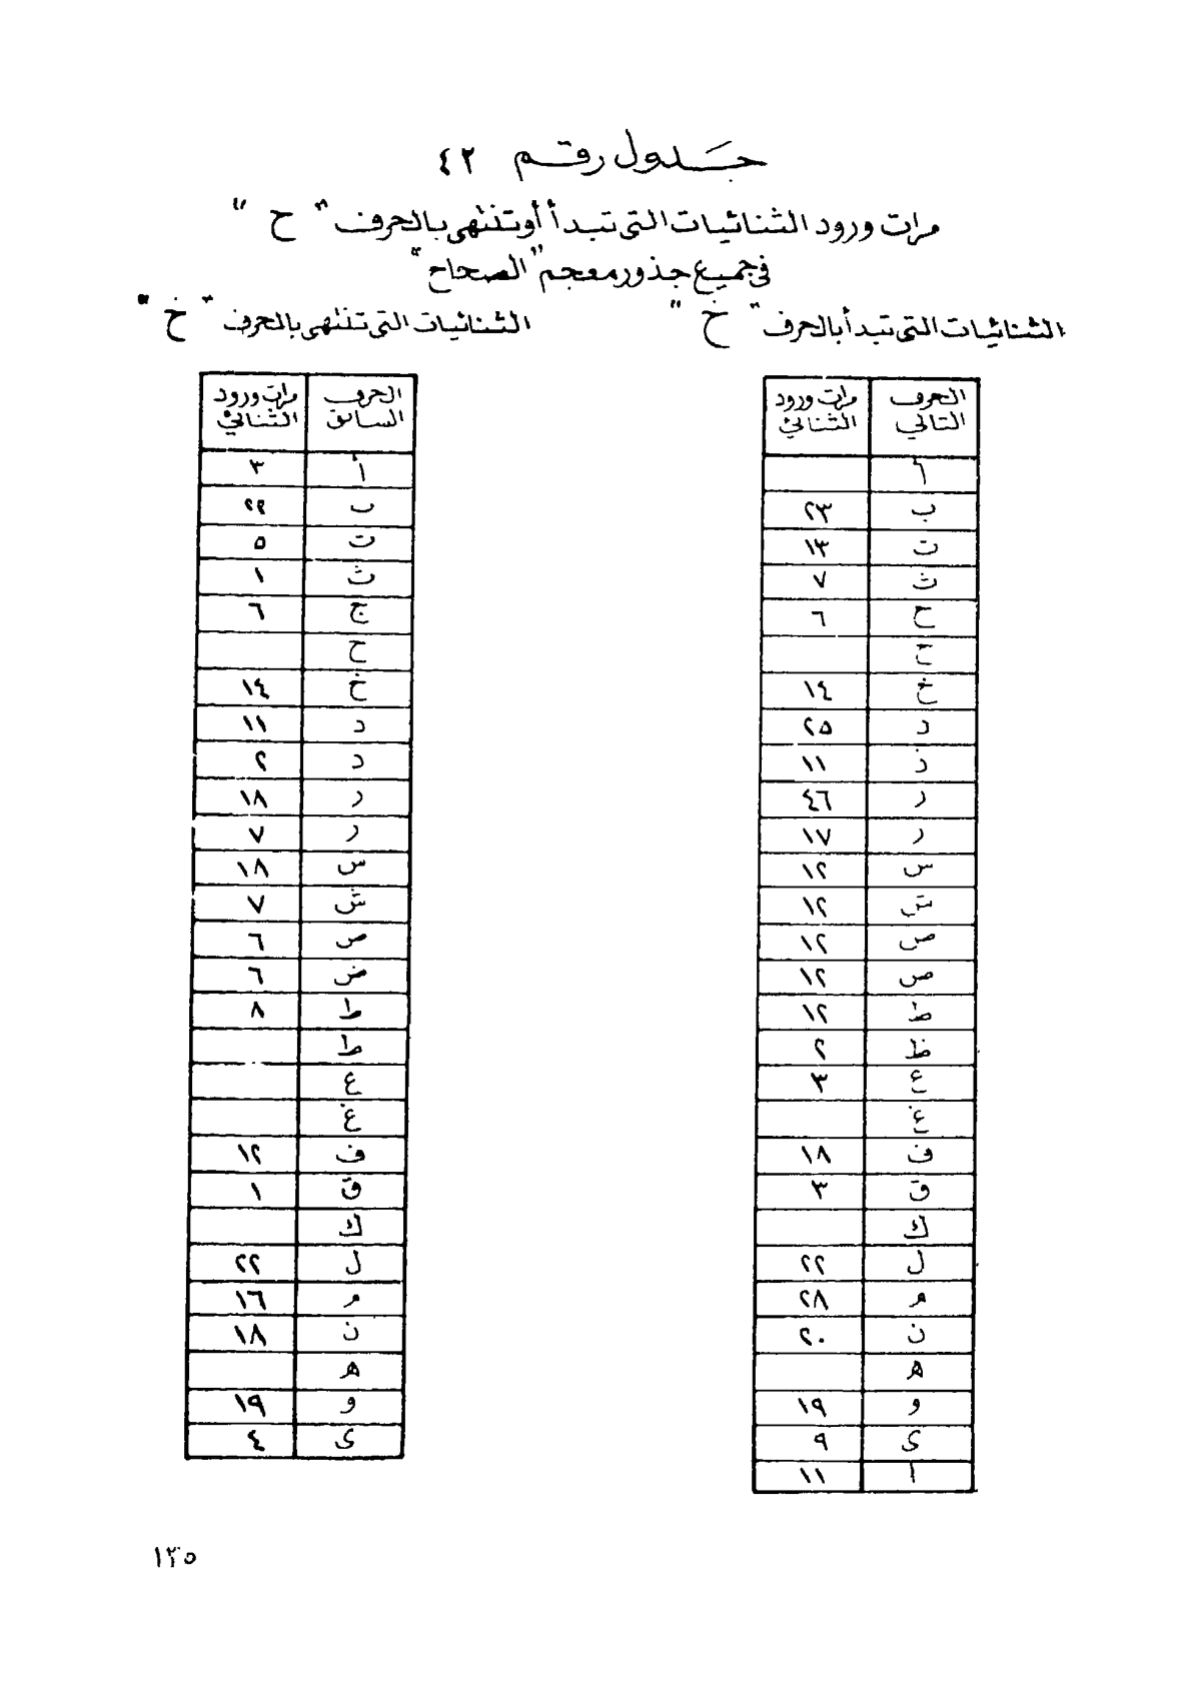 جدول رقم ٤٢
مرات ورود الثنائيات التي تبدأ أو تنتهى بالحرف "ح"
في جميع جذور معجم "الصحاح"
الثنائيات التى تبدأ بالحرف "خ"
الحرف التالي مرات ورود الثنائي
أ
ب ٢٣
ت ١٣
ث ٧
ح ٦
ح
خ ١٤
د ٢٥
ذ ١١
ر ٤٦
ر ١٧
س ١٢
ش ١٢
ص ١٢
ص ١٢
ط ١٢
ظ ٢
ع ٣
غ
ف ١٨
ق ٣
ك
ل ٢٢
م ٢٨
ن ٢٠
ه
و ١٩
ى ٩
ا ١١
الثنائيات التى تنتهى بالحرف "خ"
الحرف السابق مرات ورود الثنائي
أ ٣
ب ٢٢
ت ٥
ث ١
ج ٦
ح
خ ١٤
د ١١
د ٢
ر ١٨
ر ٧
س ١٨
ش ٧
ص ٦
ض ٦
ط ٨
ط
ع
غ
ف ١٢
ق ١
ك
ل ٢٢
م ١٦
ن ١٨
ه
و ١٩
ى ٤
١٣٥